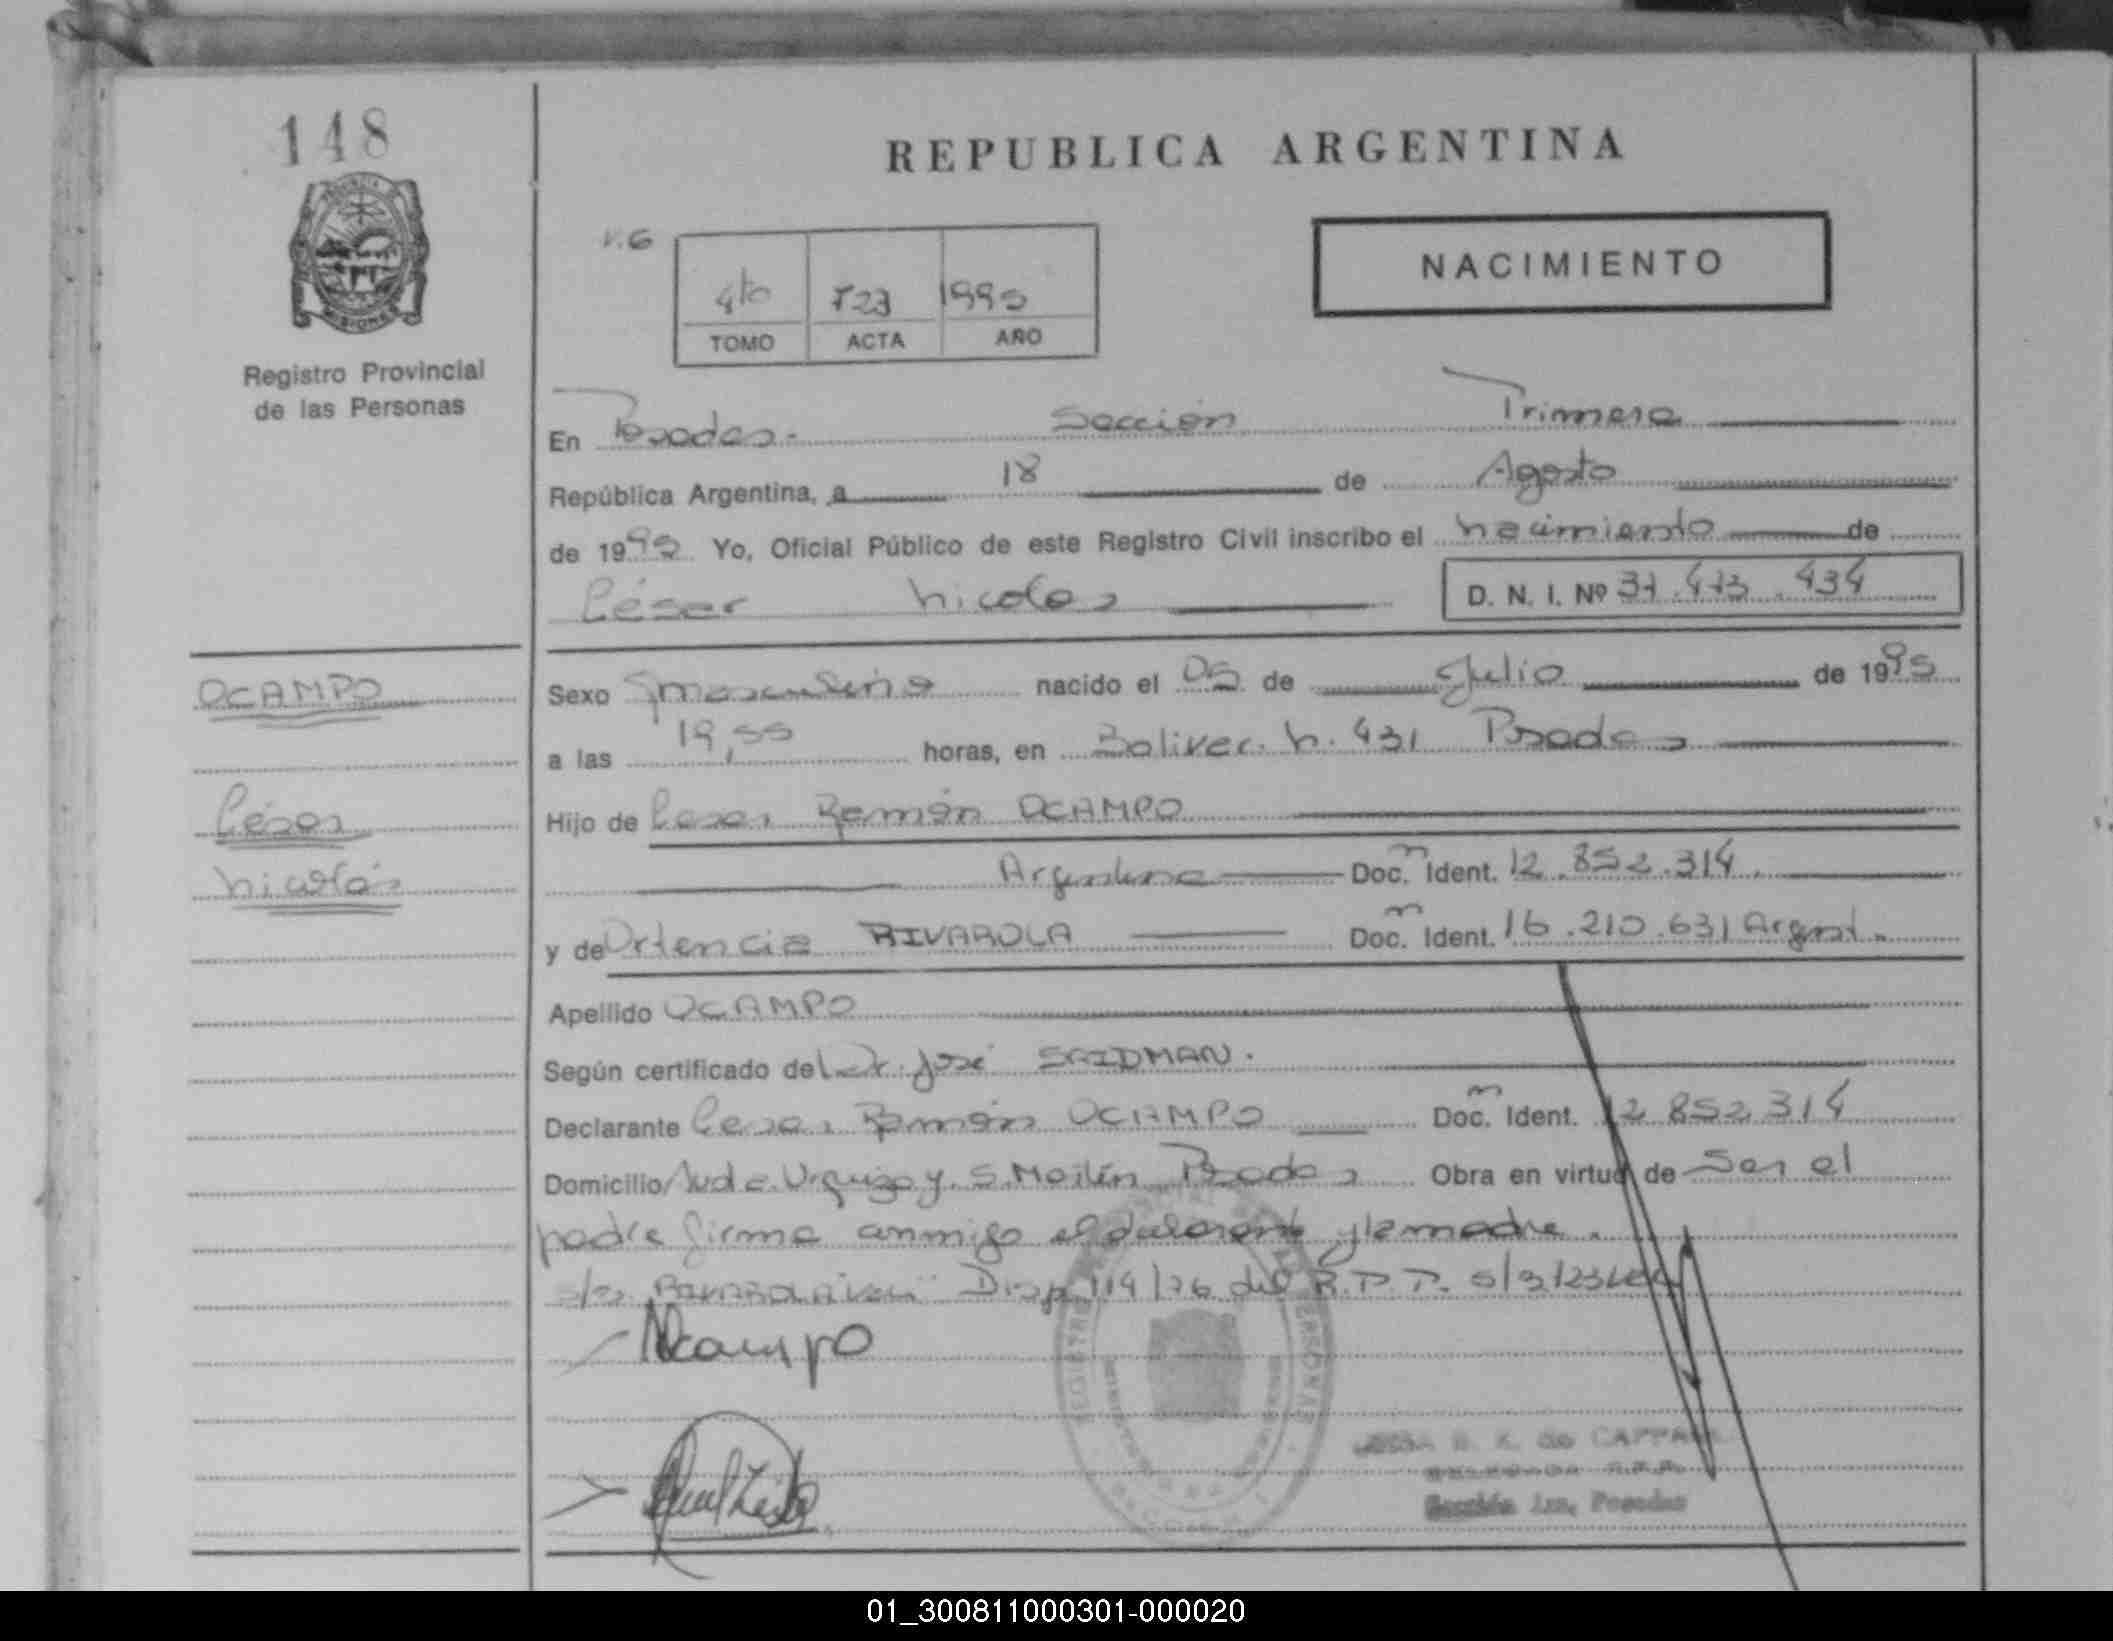 148
REPUBLICA ARGENTINA
NACIMIENTO
4to 723 1995
TOMO ACTA AÑO
MISIONES
Registro Provincial
de las Personas
En Posadas. Sección Primera
República Argentina, a 18 de Agosto
de 1995 Yo, Oficial Público de este Registro Civil inscribo el nacimiento de
César Nicolas D. N. I. Nº 434
OCAMPO
César
Nicolás
Sexo masculino nacido el 05 de Julio de 1995
a las 19,55 horas, en Bolivar. N. 431 Posadas
Hijo de Cesar Ramón OCAMPO
Argentino Doc. Ident. 12.852.314.
y de Ortencia RIVAROLA Doc. Ident. 16.210.631 Argent.
Apellido OCAMPO
Según certificado del Dr. José SAIDMAN.
Declarante Cesar Ramón OCAMPO Doc. Ident. 12 852 314
Domicilio Urquiza y S. Posadas Obra en virtud de ser el
padre firma conmigo el declarante y la madre.
Disp 114/76 del R.P.P.
Ocampo
de CAPPA
Sección 1ra. Posadas
01_300811000301-000020